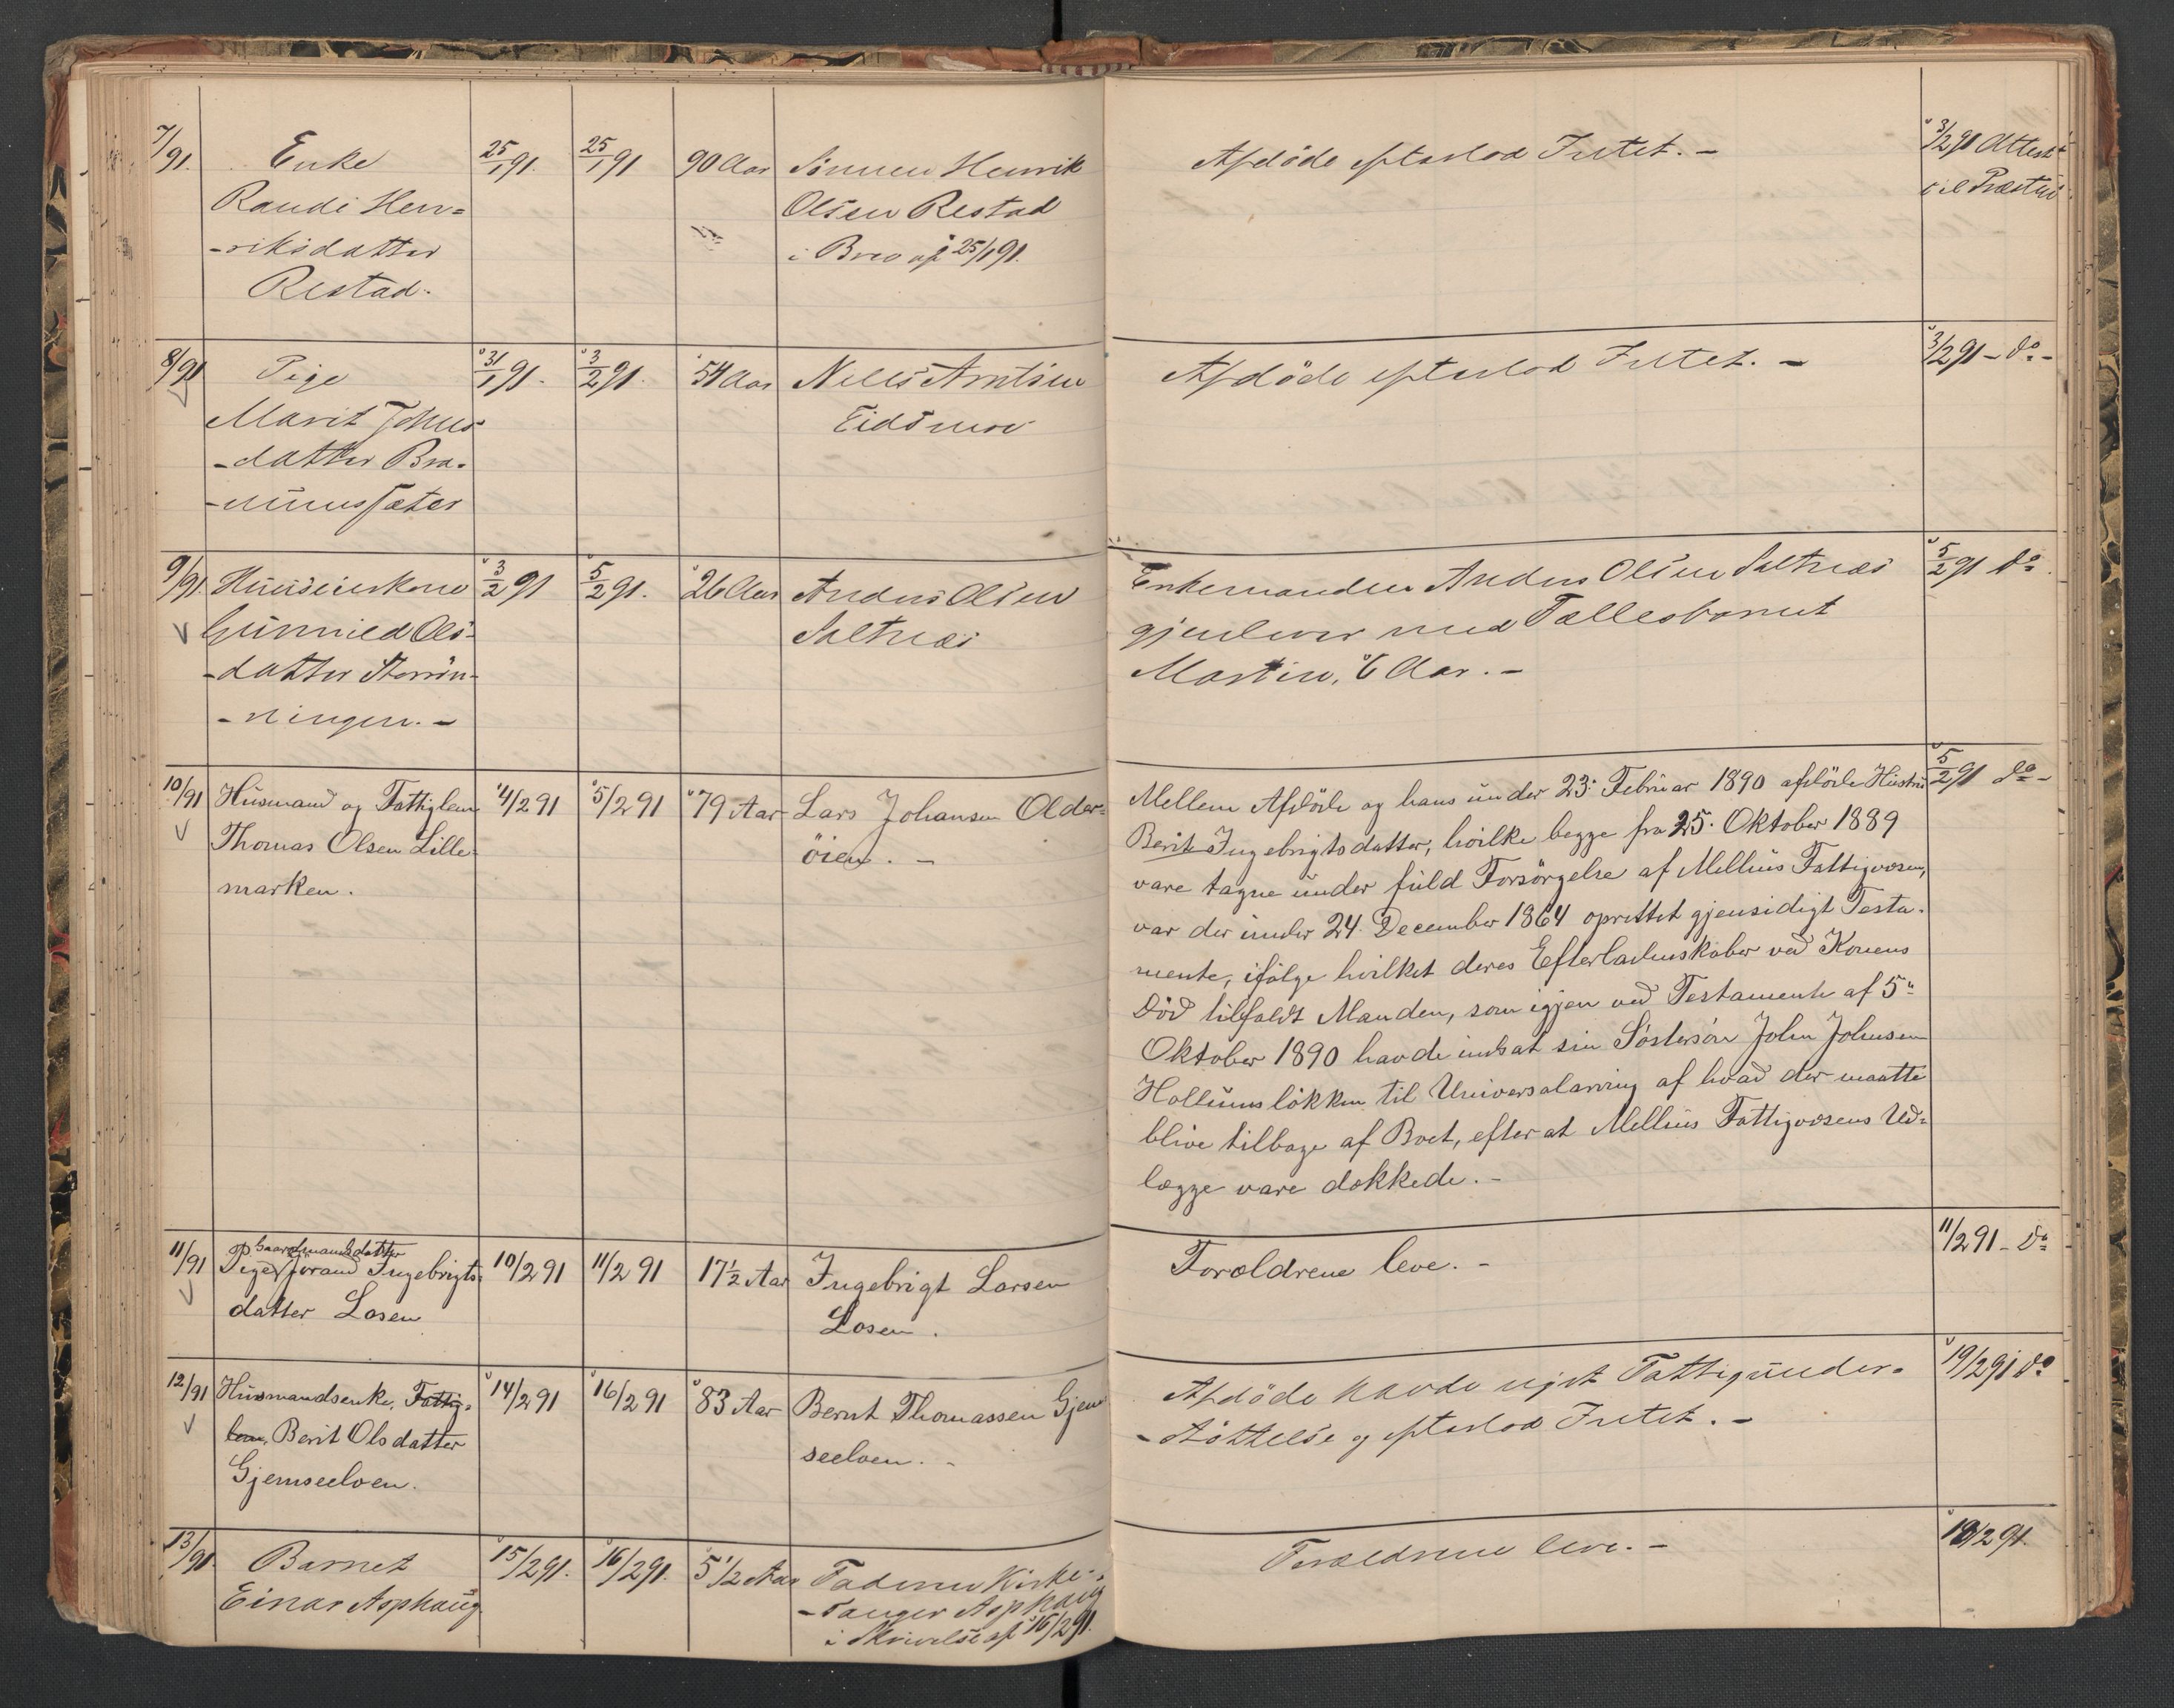 7/91.
Enke
Randi Hen=
-riksdatter
Restad.
25/1 91.
25/1 91
90 Aar
Sönnen Henrik
Olsen Restad
i Brev af 25/1 91.
Afdöde efterlod Intet. -
3/2 91 Attest
til Præsten
8/91
Pige
Marit Johns
-datter Bra-
31/1 91.
3/2 91.
54 Aar
Nils Arntsen
Eidsmo
Afdöde efterlod Intet. -
3/2 91 - do -
9/91.
Gunnild Ols-
-datter Storrön-
-ningen. -
3/2 91
5/2 91.
26 Aar
Anders Olsen
Saltnæs
Enkemanden Anders Olsen Saltnæs
gjenlever med Fællesbarnet
Martin, 6 Aar. -
5/2 91 do.
10/91
Husmand og Fattiglem
Thomas Olsen Lille-
marken.
4/2 91
5/2 91
79 Aar
Lars Johansen Older-
öien. -
Mellem Afdöde og hans under 23: Februar 1890 afdöde Hustru
Berit Ingebrigtsdatter, hvilke begge fra 25. Oktober 1889
vare tagne under fuld Forsörgelse af Melhus Fattigvæsen,
var der under 24. December 1864 oprettet gjensidigt Testa-
mente, ifölge hvilket deres Efterladenskaber ved Konens
Död tilfaldt Manden, som igjen ved Testamente af 5"
Oktober 1890 havde indsat sin Söstersön John Johnsen
Hollumslökken til Universalarving af hvad der maatte
blive tilbage af Boet, efter at Melhus Fattigvæsens Ud-
lægge vare dækkede. -
5/2 91 do -
11/91
Gaardmandsdatter
Pige Jörand Ingebrigts-
datter Losen
10/2 91
11/2 91
17 1/2 Aar
Ingebrigt Larsen
Losen.
Forældrene leve. -
11/2 91 - do
12/91
Husmandsenke, Fattig-
lem, Berit Olsdatter
Gjemseeloen.
14/2 91
16/2 91
83 Aar
Bernt Thomassen Gjem
seeloen. -
Afdöde havde nydt Fattigunder-
-stöttelse og efterlod Intet. -
19/2 91 do
13/91.
Barnet
Einar Asphaug
15/2 91.
16/2 91.
5 1/2 Aar
Faderen Kirke-
-sanger Asphaug
i Skrivelse af 16/2 91.
Forældrene leve. -
19/2 91.